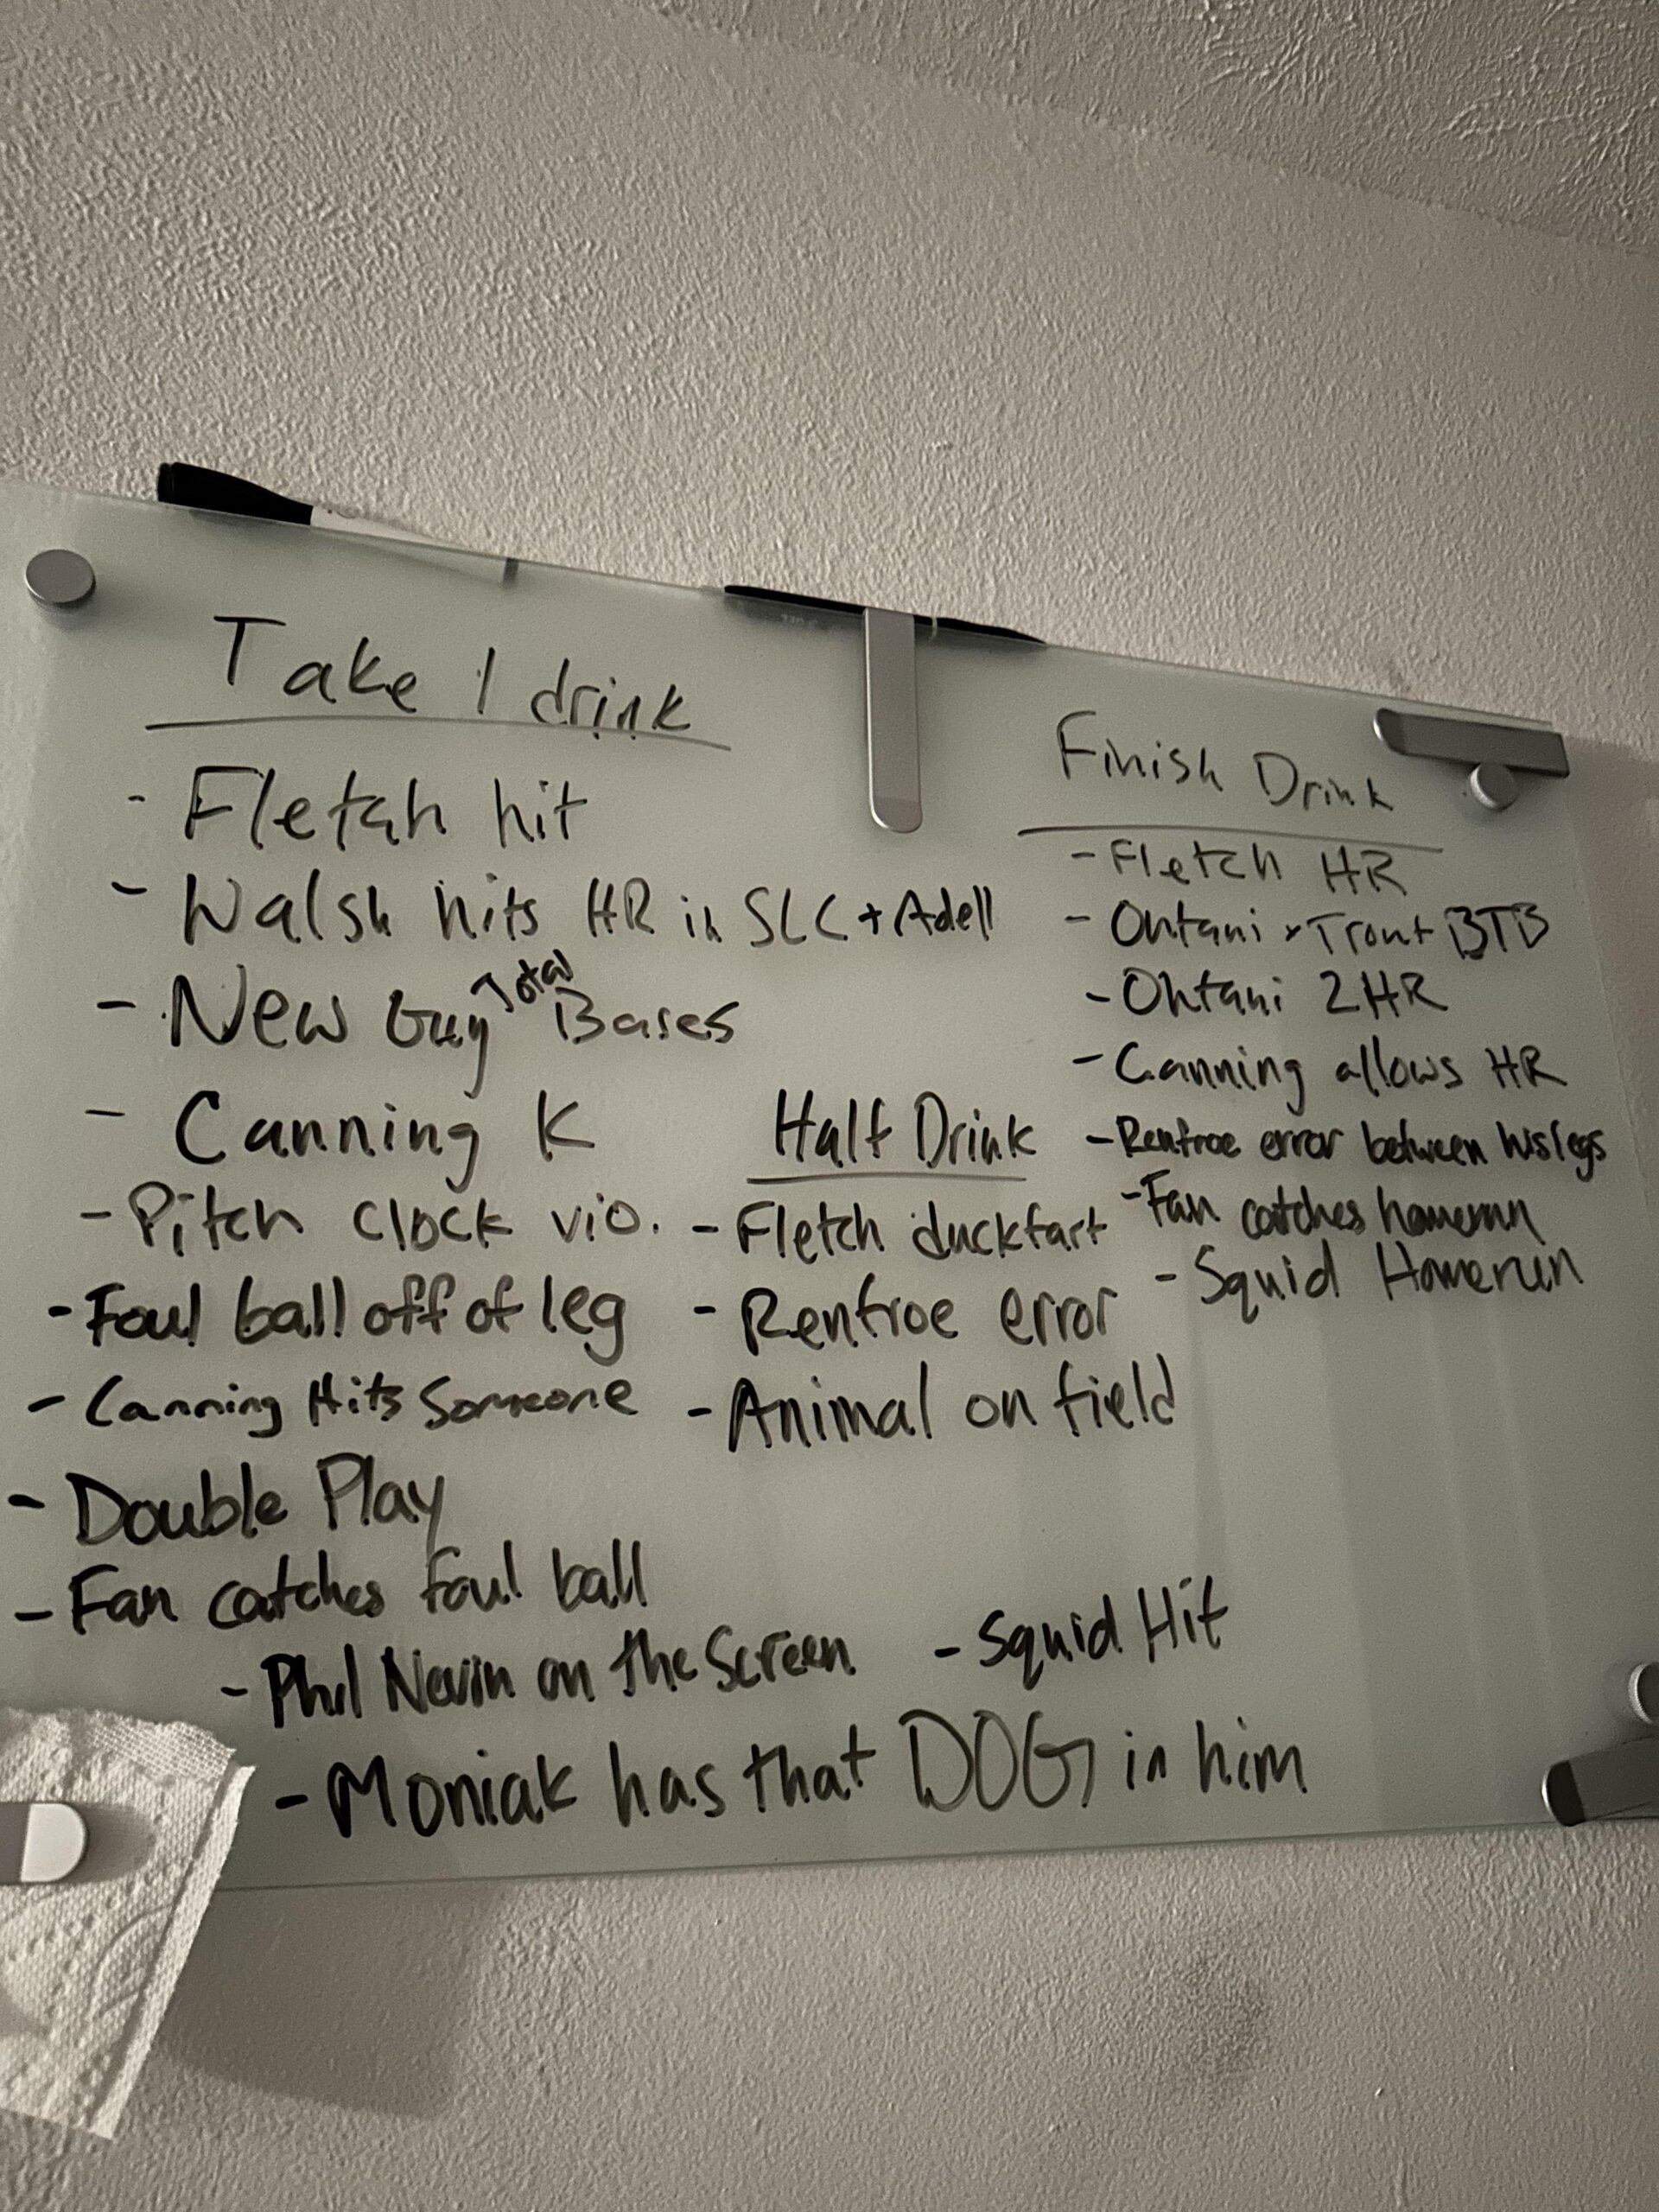 Take 1 drink
- Fletch hit
- Walsh hits HR in SLC + Adell
- New Guy Total Bases
- Canning K
- Pitch clock vio.
- Foul ball off of leg
- Canning Hits Someone
- Double Play
- Fan catches foul ball
- Phil Nevin on the Screen
- Squid Hit
- Moniak has that DOG in him
Half Drink
- Fletch duckfart
- Renfroe error
- Animal on field
Finish Drink
- Fletch HR
- Ohtani + Trout BTB
- Ohtani 2HR
- Canning allows HR
- Renfroe error between his legs
- Fan catches homerun
- Squid Homerun